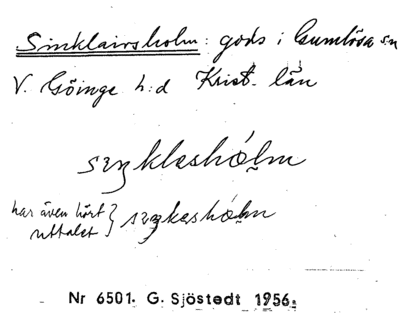 Sinklairsholm: gods i Gumlösa sn
V. Göinge h:d Krist. län
seŋkləshólm
har även hört uttalet } seŋkəshólm
Nr 6501. G. Sjöstedt 1956.